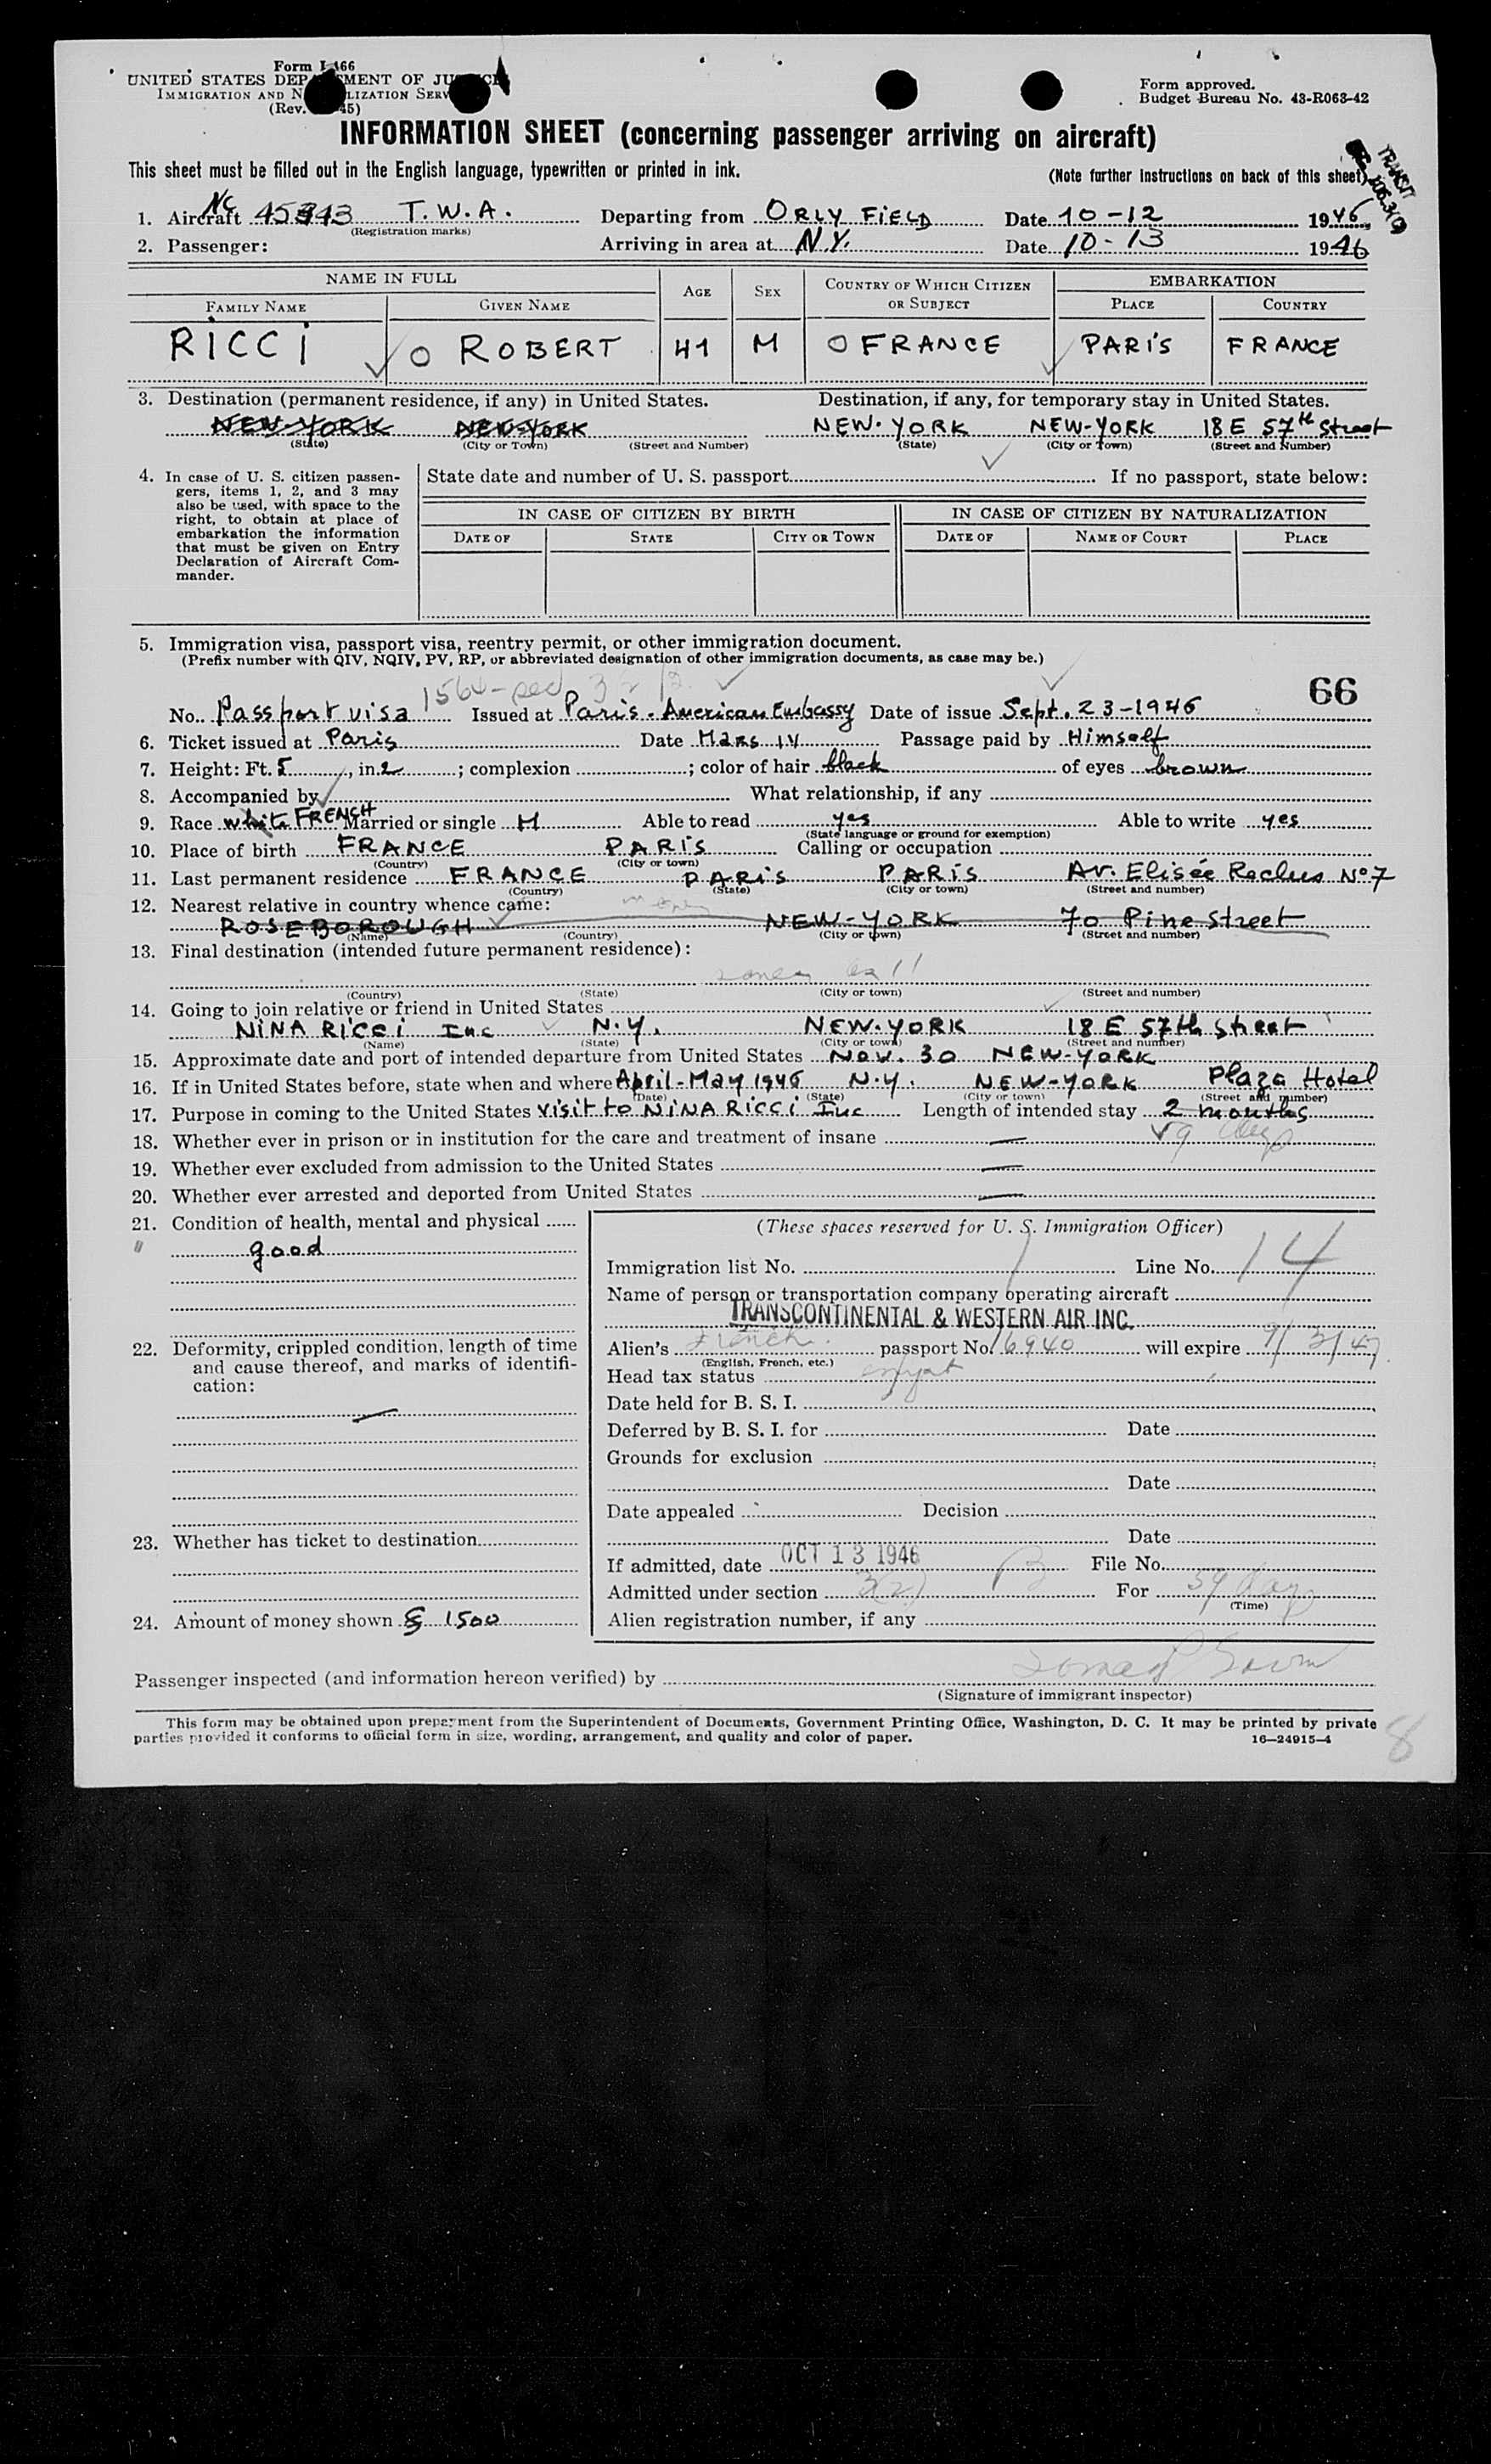 Form I-466
UNITED STATES DEPARTMENT OF JUSTICE
IMMIGRATION AND NATURALIZATION SERVICE
(Rev. 45)
Form approved.
Budget Bureau No. 43-R063-42
INFORMATION SHEET (concerning passenger arriving on aircraft)
This sheet must be filled out in the English language, typewritten or printed in ink. (Note further instructions on back of this sheet)
TRANSIT
1. Aircraft NC 45343 T.W.A. Departing from ORLY FIELD Date 10-12 1946
(Registration marks)
2. Passenger: Arriving in area at N.Y. Date 10-13 1946
NAME IN FULL AGE SEX COUNTRY OF WHICH CITIZEN OR SUBJECT EMBARKATION
FAMILY NAME GIVEN NAME PLACE COUNTRY
RICCI O ROBERT 41 M O FRANCE PARIS FRANCE
3. Destination (permanent residence, if any) in United States. Destination, if any, for temporary stay in United States.
NEW-YORK NEW-YORK NEW-YORK NEW-YORK 18 E 57th Street
(State) (City or Town) (Street and Number) (State) (City or Town) (Street and Number)
4. In case of U. S. citizen passen-
gers, items 1, 2, and 3 may
also be used, with space to the
right, to obtain at place of
embarkation the information
that must be given on Entry
Declaration of Aircraft Com-
mander.
State date and number of U. S. passport If no passport, state below:
IN CASE OF CITIZEN BY BIRTH IN CASE OF CITIZEN BY NATURALIZATION
DATE OF STATE CITY OR TOWN DATE OF NAME OF COURT PLACE
5. Immigration visa, passport visa, reentry permit, or other immigration document.
(Prefix number with QIV, NQIV, PV, RP, or abbreviated designation of other immigration documents, as case may be.)
1564- 3 2 66
No. Passport visa Issued at Paris. American Embassy Date of issue Sept. 23-1946
6. Ticket issued at Paris Date Mars 14 Passage paid by Himself
7. Height: Ft. 5, in. 2; complexion ; color of hair black of eyes brown
8. Accompanied by What relationship, if any
9. Race white FRENCH Married or single M Able to read yes Able to write yes
(State language or ground for exemption)
10. Place of birth FRANCE PARIS Calling or occupation
(Country) (City or town)
11. Last permanent residence FRANCE PARIS PARIS Av. Elisée Reclus No 7
(Country) (State) (City or town) (Street and number)
12. Nearest relative in country whence came:
ROSEBOROUGH NEW-YORK 70 Pine Street
(Name) (Country) (City or town) (Street and number)
13. Final destination (intended future permanent residence):
(Country) (State) (City or town) (Street and number)
14. Going to join relative or friend in United States
NINA RICCI Inc N.Y. NEW-YORK 18 E 57th Street
(Name) (State) (City or town) (Street and number)
15. Approximate date and port of intended departure from United States Nov. 30 NEW-YORK
16. If in United States before, state when and where April-May 1946 N.Y. NEW-YORK Plaza Hotel
(Date) (State) (City or town) (Street and number)
17. Purpose in coming to the United States visit to NINA RICCI Inc Length of intended stay 2 months
18. Whether ever in prison or in institution for the care and treatment of insane —
19. Whether ever excluded from admission to the United States —
20. Whether ever arrested and deported from United States —
21. Condition of health, mental and physical
good
22. Deformity, crippled condition, length of time
and cause thereof, and marks of identifi-
cation:
—
23. Whether has ticket to destination
24. Amount of money shown $ 1500
(These spaces reserved for U. S. Immigration Officer)
Immigration list No. Line No. 14
Name of person or transportation company operating aircraft
TRANSCONTINENTAL & WESTERN AIR INC.
Alien's French passport No. 16940 will expire 9/3/47
(English, French, etc.)
Head tax status
Date held for B. S. I.
Deferred by B. S. I. for Date
Grounds for exclusion
Date
Date appealed Decision
Date
If admitted, date OCT 13 1946 File No.
Admitted under section 3(2) For 59 days
(Time)
Alien registration number, if any
Passenger inspected (and information hereon verified) by
(Signature of immigrant inspector)
This form may be obtained upon prepayment from the Superintendent of Documents, Government Printing Office, Washington, D. C. It may be printed by private
parties provided it conforms to official form in size, wording, arrangement, and quality and color of paper. 16—24915-4
8